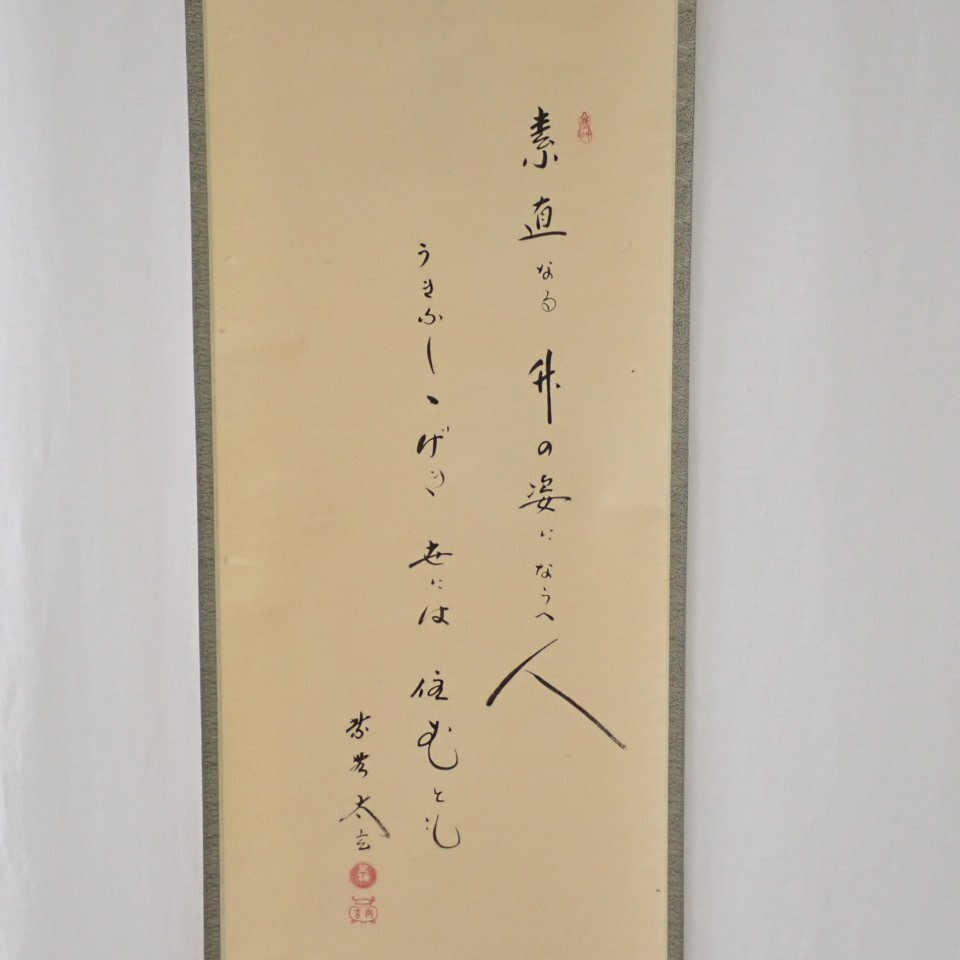 素直なる竹の姿にならへ人
うきふしゝげき世には住むとも
紫野太玄